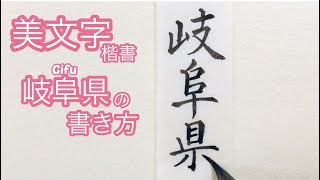 美文字 楷書
Gifu
岐阜県の
書き方
岐阜県